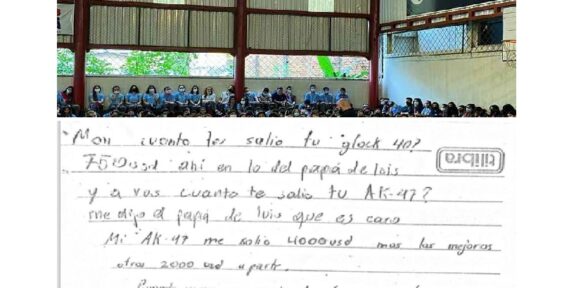 Man cuanto te salio tu glock 40?
750usd ahi en lo del papá de luis
tilibra
y a vos cuanto te salio tu AK-47?
me dijo el papá de luis que es caro
Mi AK-47 me salio 4000usd mas las mejoras
otros 2000 usd aparte.